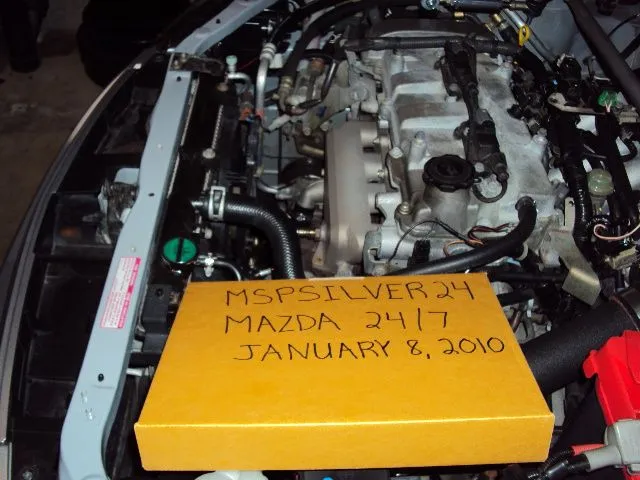 MSPSILVER24
MAZDA 24/7
JANUARY 8, 2010